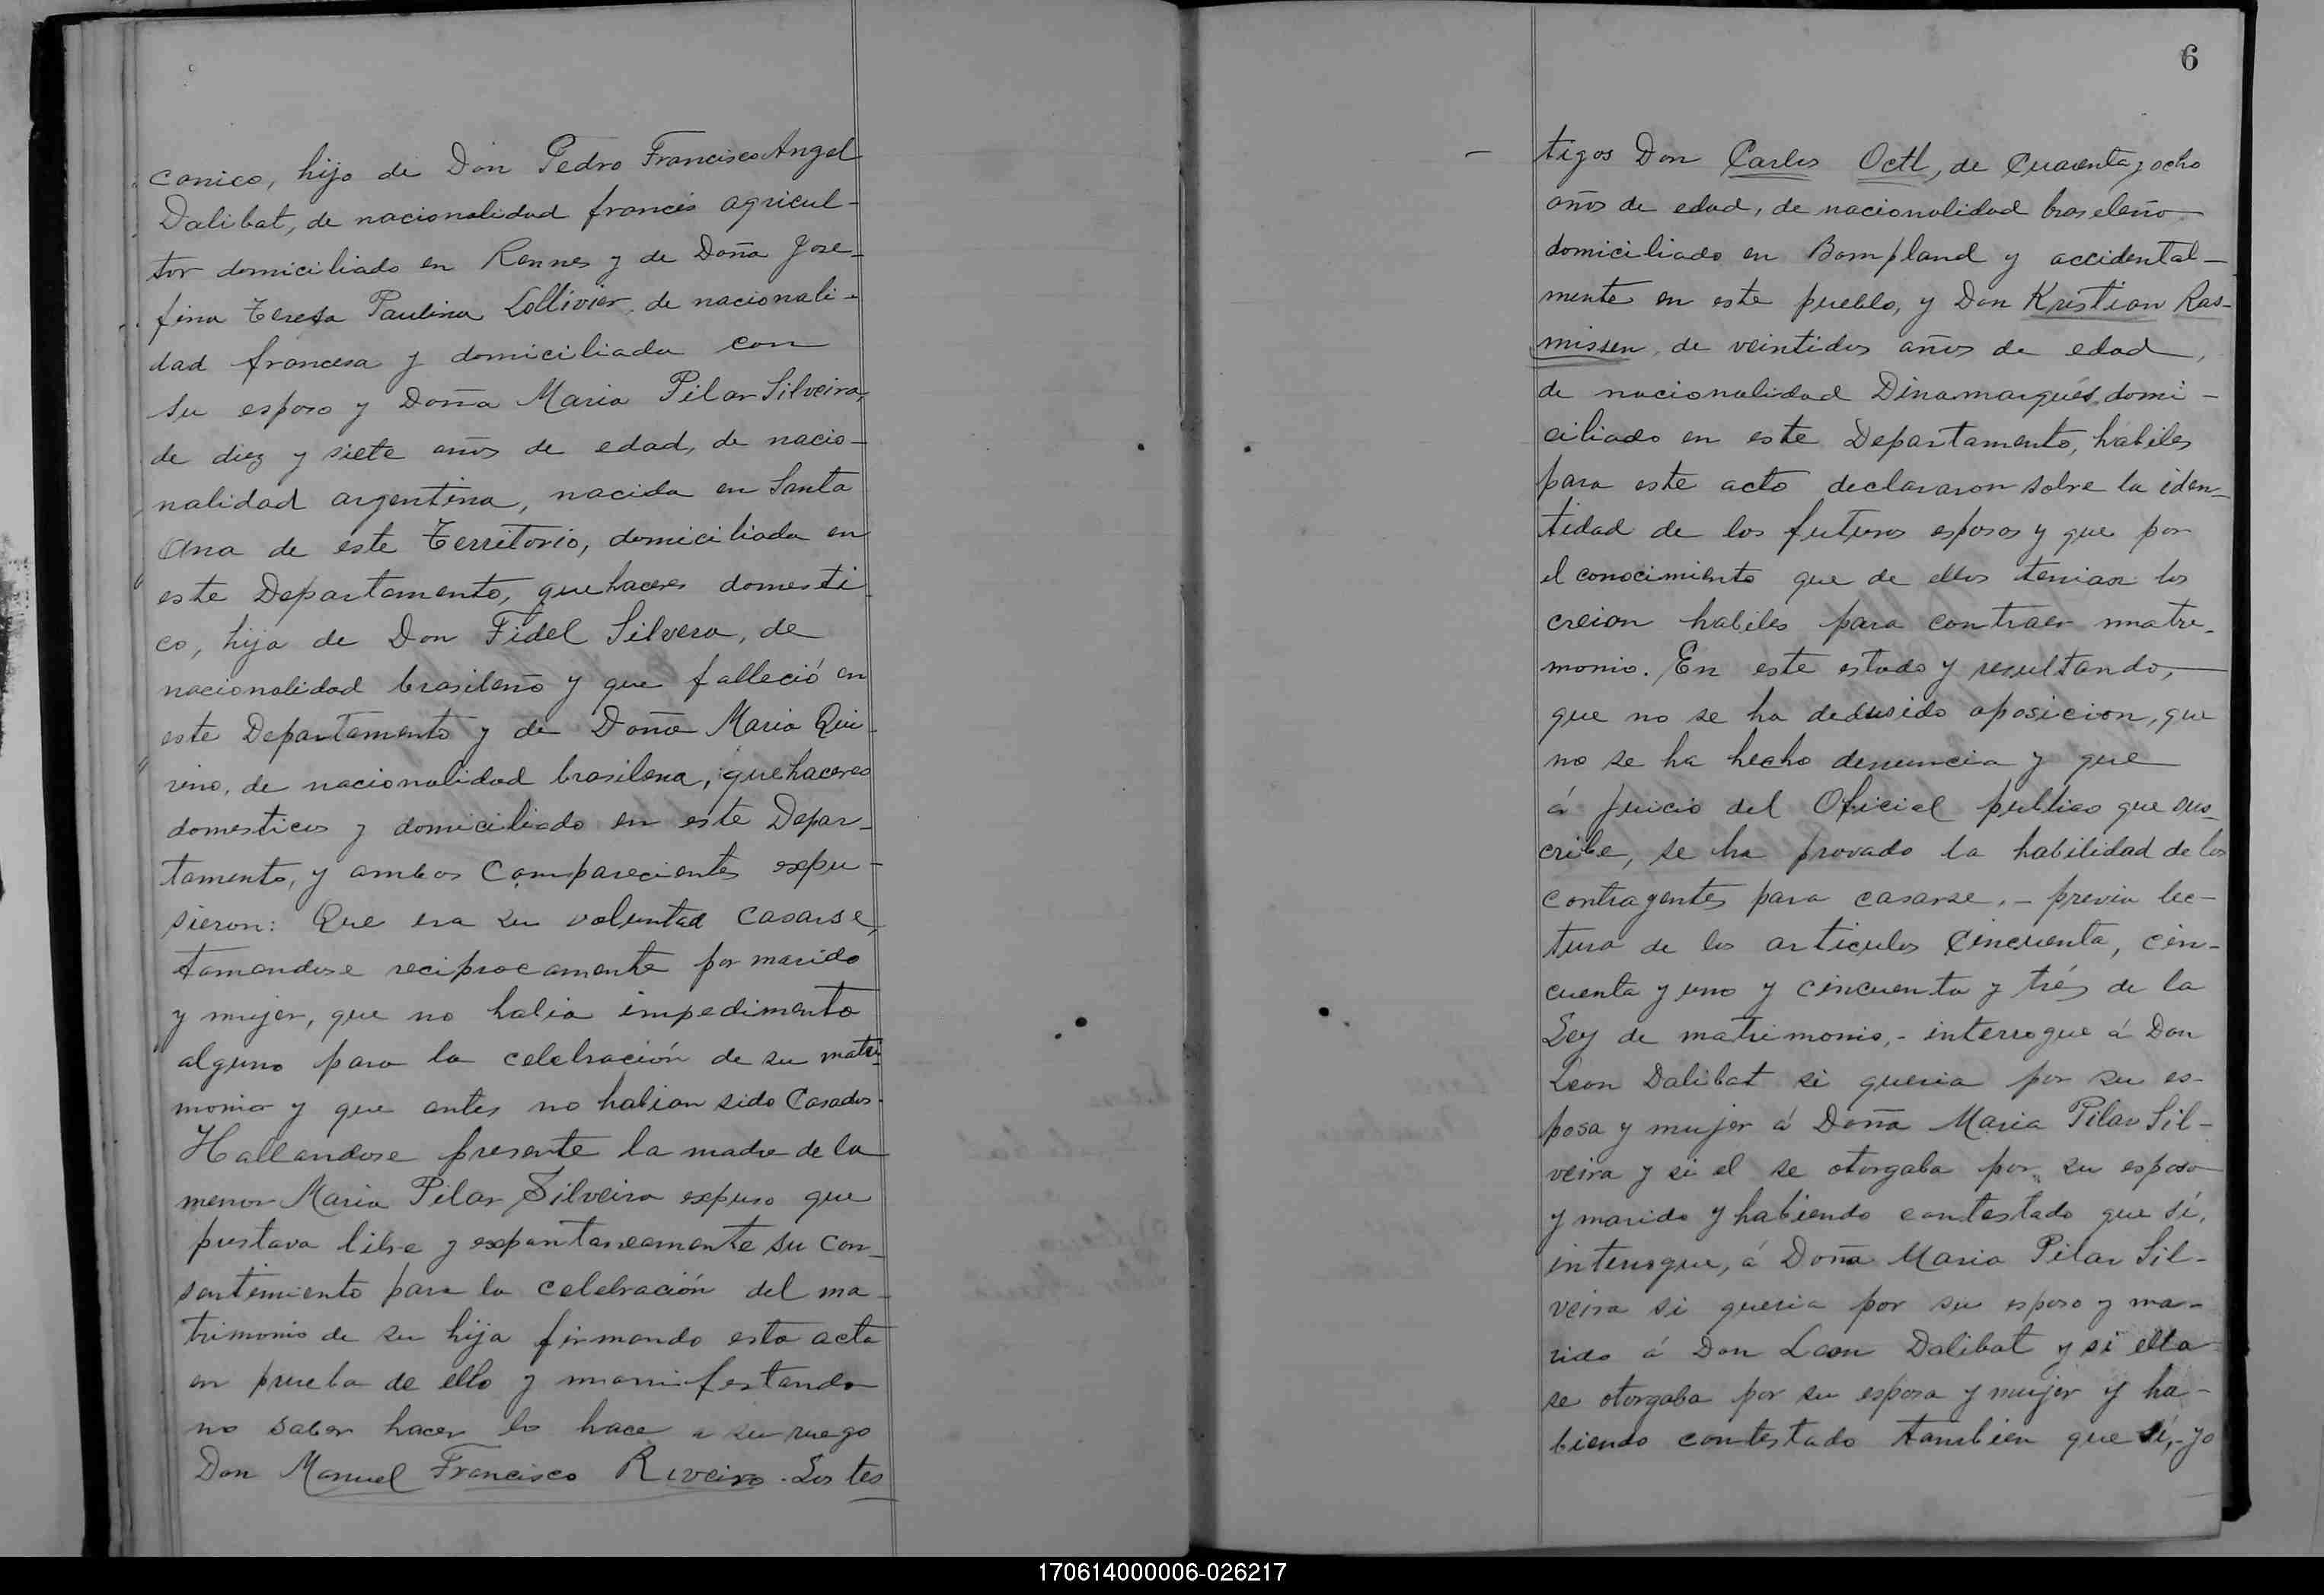 canico, hijo de Don Pedro Francisco Angel
Dalibat, de nacionalidad francés agricul-
tor domiciliado en Rennes y de Doña Jose-
fina Teresa Paulina Lollivier, de nacionali-
dad francesa y domiciliada con
su esposo y Doña Maria Pilar Silveira,
de diez y siete años de edad, de nacio-
nalidad argentina, nacida en Santa
Ana de este Territorio, domiciliada en
este Departamento, quehaceres domesti
co, hija de Don Fidel Silvera, de
nacionalidad brasileño y que falleció en
este Departamento y de Doña Maria Qui-
rino, de nacionalidad brasilena, quehaceres
domesticos y domiciliado en este Depar-
tamento, y ambos Comparecientes expu-
sieron: Que era su voluntad casarse,
tamandose reciprocamente por marido
y mujer, que no habia impedimento
alguno para la celebración de su matri-
monio y que antes no habian sido Casados.
Hallandose presente la madre de la
menor Maria Pilar Silveira expuso que
prestava libre y expontaneamente su con-
sentimiento para la celebración del ma-
trimonio de su hija firmando esta acta
en prueba de ello y manifestando
no saber hacer lo hace a su ruego
Don Manuel Francisco Riveiro. Los tes
6
tigos Don Carlos Octl, de Cuarenta y ocho
años de edad, de nacionalidad braseleño
domiciliado en Bompland y accidental-
mente en este pueblo, y Don Kristian Ras-
missen, de veintidos años de edad,
de nacionalidad Dinamarqués domi-
ciliado en este Departamento, habiles
para este acto declararon sobre la iden-
tidad de los futuros esposos y que por
el conocimiento que de ellos tenian los
creian habiles para contraer matri-
monio. En este estado y resultando,
que no se ha dedusido oposicion, que
no se ha hecho denuncia y que
á juicio del Oficial publico que sus-
cribe, se ha provado la habilidad de los
contragentes para casarse. - previa lec-
tura de los articulos Cincuenta, cin-
cuenta y uno y cincuenta y trés de la
Ley de matrimonio, - interrogue á Don
Leon Dalibat si queria por su es-
posa y mujer á Doña Maria Pilar Sil-
veira y si el se otorgaba por su esposo
y marido y habiendo contestado que sí,
interrogue, á Doña Maria Pilar Sil-
veira si queria por su esposo y ma-
rido á Don Leon Dalibat y si ella
se otorgaba por su esposa y mujer y ha-
biendo contestado tambien que sí, - yo
170614000006-026217